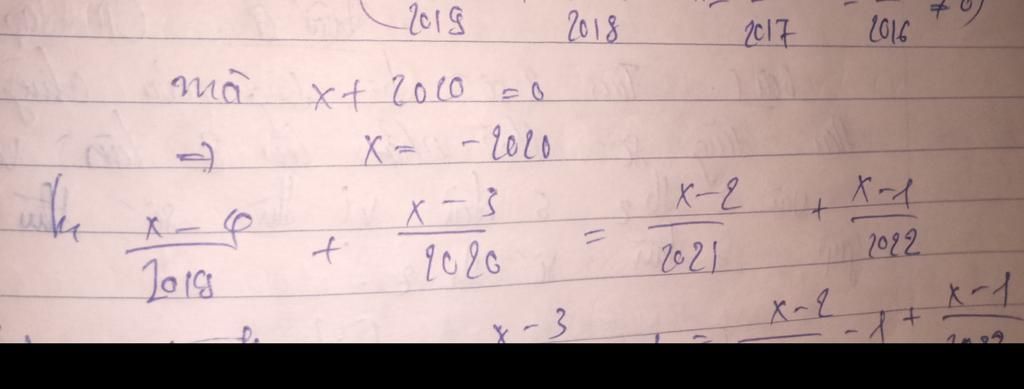 2019 2018 2017 2016 ≠ 0)
mà x + 2020 = 0
=> x = -2020
k, (x - 4)/2019 + (x - 3)/2020 = (x - 2)/2021 + (x - 1)/2022
x - 3 = (x - 2) - 1 + (x - 1)